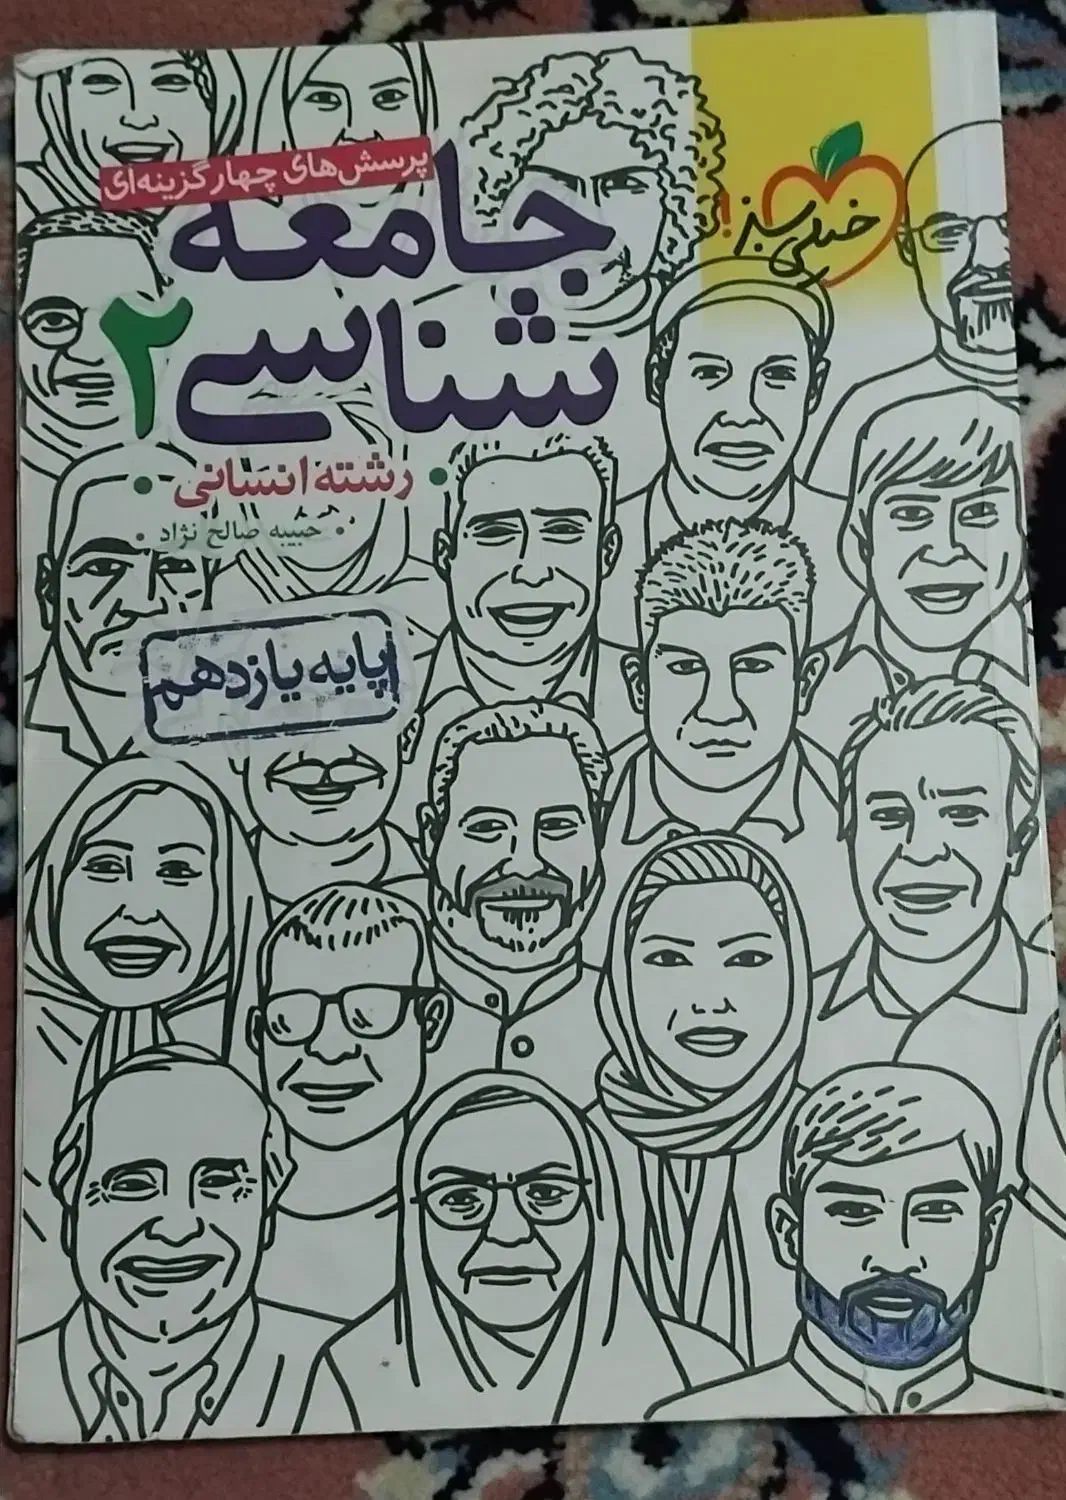 خیلی سبز!
پرسش‌های چهارگزینه‌ای
جامعه
شناسی ۲
• رشته انسانی •
• حبیبه صالح نژاد •
پایه یازدهم